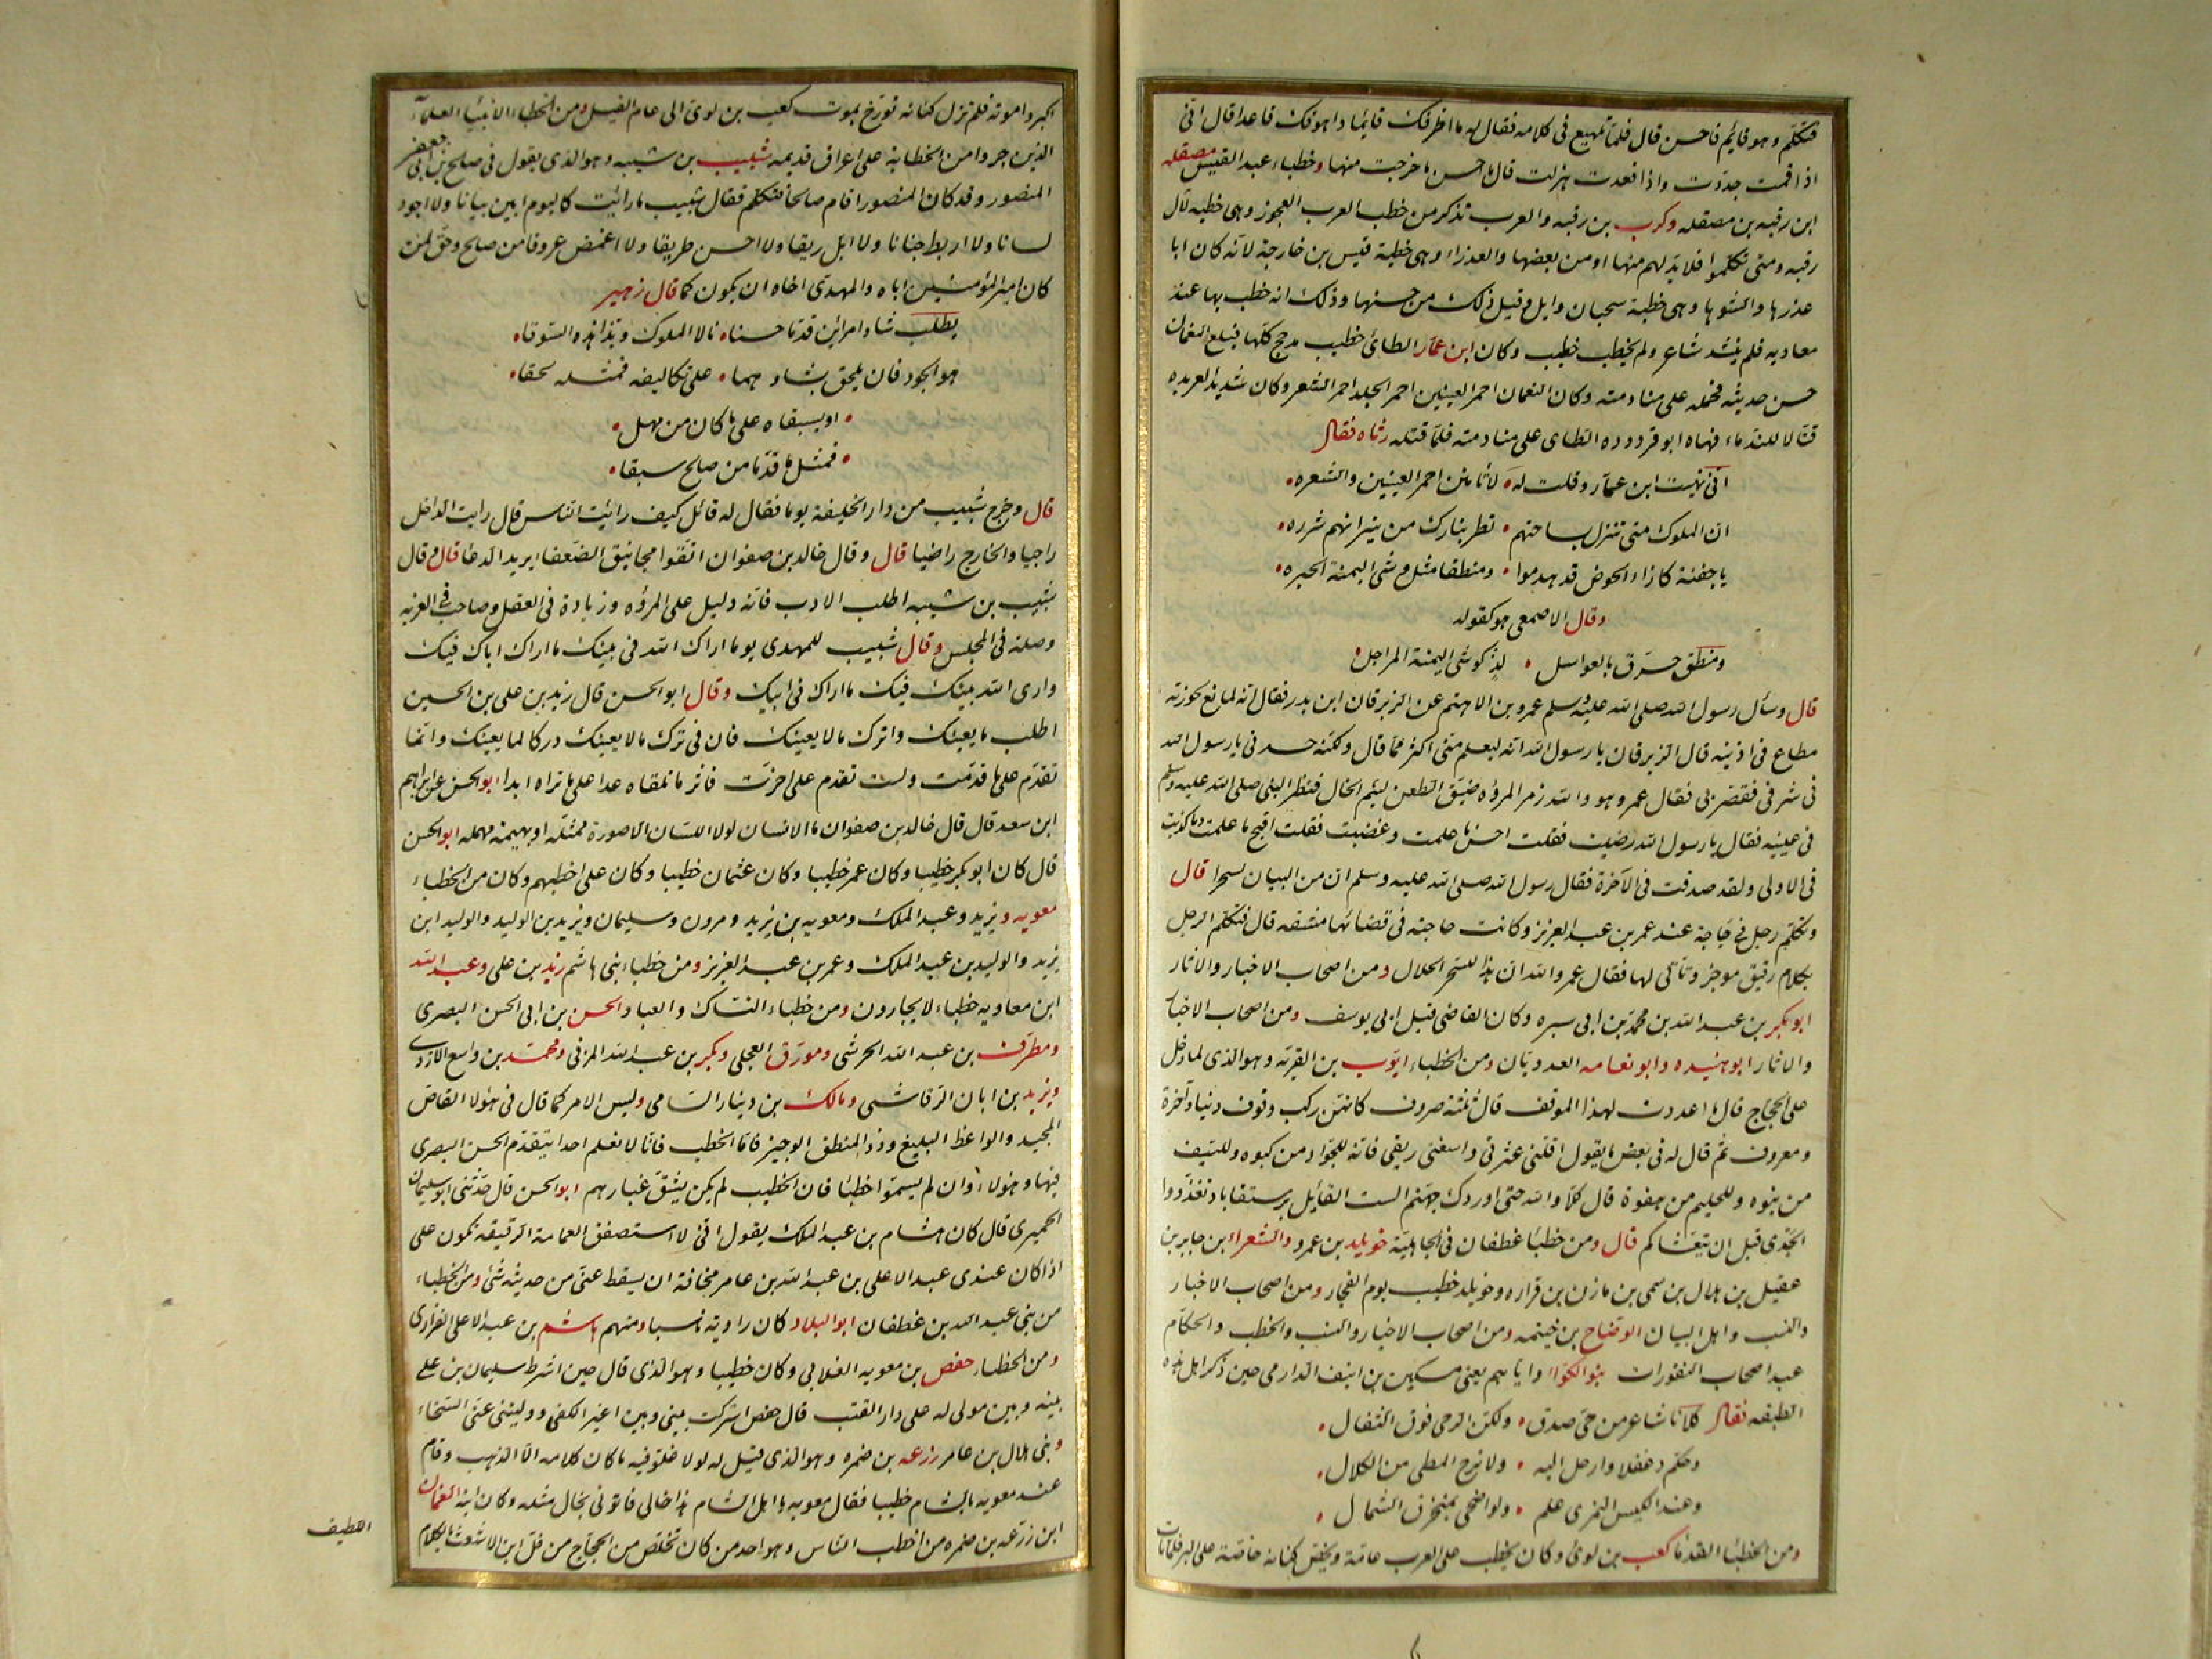 فتكلم وهو قائم فاحسن قال فلما تمهيع فى كلامه فقال له ما اظرفك قائما واموقك قاعدا قال انى
اذا قمت جددت واذا قعدت هزلت قال ما احسن ما خرجت منها وخطباء عبد القيس مصقله
ابن رقبه بن مصقله وكرب بن رقبه والعرب تذكر من خطب العرب العجوز وهى خطبه لآل
رقبه ومتى تكلموا فلا بد لهم منها او من بعضها والعذراء وهى خطبة قيس بن خارجة لانه كان ابا
عذرها والشوها وهى خطبة سحبان وايل وقيل ذلك من حسنها وذلك انه خطب بها عند
معاويه فلم ينشد شاعر ولم يخطب خطيب وكان ابن عمار الطائى خطيب مذحج كلها فبلغ النعمان
حسن حديثه فحمله على منادمته وكان النعمان احمر العينين احمر الجلد احمر الشعر وكان شديد العربده
قتالا للندماء فنهاه ابو قردوده الطاى على منادمته فلما قتله رثاه فقال
انى نهيت ابن عمار وقلت له لا تأمنن احمر العينين والشعره
ان الملوك متى تنزل بساحتهم تطر بنارك من نيرانهم شرره
يا جفنة كازاء الحوض قد هدموا ومنطقا مثل وشى اليمنة الحبره
وقال الاصمعى هو كقوله
ومنطق خرق بالعواسل لذ كوشى اليمنة المراجل
قال وسأل رسول الله صلى الله عليه وسلم عمرو بن الاهتم عن الزبرقان ابن بدر فقال انه لمانع لحوزته
مطاع فى اذنيه قال الزبرقان يا رسول الله انه ليعلم منى اكثر مما قال ولكنه حسدنى يا رسول الله
فى شرفى فقصر بى فقال عمرو هو والله زمر المروه ضيق الطعن لئيم الخال فنظر النبى صلى الله عليه وسلم
فى عينيه فقال يا رسول الله رضيت فقلت احسن ما علمت وغضبت فقلت اقبح ما علمت وما كذبت
فى الاولى ولقد صدقت فى الآخرة فقال رسول الله صلى الله عليه وسلم ان من البيان لسحرا قال
وتكلم رجل فى حاجة عند عمر بن عبد العزيز وكانت حاجته فى قضائها مشقه قال فتكلم الرجل
بكلام رقيق موجز وتأتى لها فقال عمر والله ان هذا للسحر الحلال ومن اصحاب الاخبار والاثار
ابو بكر بن عبد الله بن محمد بن ابى سبره وكان القاضى قبل ابى يوسف ومن اصحاب الاخبار
والاثار ابو هنيده وابو نعامه العدويان ومن الخطباء ايوب بن القريه وهو الذى لما دخل
على الحجاج قال ما اعددت لهذا الموقف قال ثلثة صروف كانهن ركب وقوف دنيا وآخرة
ومعروف ثم قال له فى بعض ما يقول اقلنى عثرتى واسغنى ريقى فانه للجواد من كبوه وللسيف
من نبوه وللحليم من هفوة قال كلا والله حتى اوردك جهنم الست القائل برستقاباد تغدوا
الجدى قبل ان يتعشاكم قال ومن خطباء غطفان فى الجاهلية خويلد بن عمرو والشعراء بن جابر بن
عقيل بن هلال بن سمى بن مازن بن فزاره وخويلد خطيب يوم الفجار ومن اصحاب الاخبار
والنسب واهل البيان الوضاح بن خيثمه ومن اصحاب الاخبار والنسب والخطب والحكام
عند اصحاب النفورات بنو الكواء واياهم يعنى مسكين بن انيف الدارمى حين ذكر اهل هذه
الطبقه فقال كلانا شاعر من حى صدق ولكن الرحى فوق الثفال
وحكم دغفلا وارحل اليه ولا ترح المطى من الكلال
وعند الكيس النمرى علم ولو اضحى بمنخرق الشمال
ومن الخطباء القدماء كعب بن لوى وكان يخطب على العرب عامة ويحض كنانه خاصة على البر فلما مات
اكبروا موته فلم تزل كنانه تورخ بموت كعب بن لوى الى عام الفيل ومن الخطباء الابيناء العلماء
الذين جروا من الخطابة على اعراق قديمه شبيب بن شيبه وهو الذى يقول فى صالح بن ابى جعفر
المنصور وقد كان المنصور اقام صالحا فتكلم فقال شبيب ما رائيت كاليوم ابين بيانا ولا اجود
لسانا ولا اربط جنانا ولا ابل ريقا ولا احسن طريقا ولا اغمض عروقا من صالح وحق لمن
كان امير المؤمنين اباه والمهدى اخاه ان يكون كما قال زهير
يطلب شاو امراين قدما حسنا نالا الملوك وبذا هذه السوقا
هو الجود فان يلحق بشاوهما على تكاليفه فمثله لحقا
او يسبقاه على ما كان من مهل
فمثل ما قدما من صالح سبقا
قال وخرج شبيب من دار الخليفة يوما فقال له قائل كيف رائيت الناس قال رايت الداخل
راجيا والخارج راضيا قال وقال خالد بن صفوان اتقوا مجانيق الضعفاء يريد الدعا قال وقال
شبيب بن شيبه اطلب الادب فانه دليل على المروه وزيادة فى العقل وصاحب فى الغربه
وصلة فى المجلس وقال شبيب للمهدى يوما اراك الله فى بنيك ما اراك اباك فيك
وارى الله بنيك فيك ما اراك فى ابيك وقال ابو الحسن قال زيد بن على بن الحسين
اطلب ما يعنيك واترك ما لا يعنيك فان فى ترك ما لا يعنيك دركا لما يعنيك وانما
تقدم على ما قدمت ولست تقدم على اخرت فاثر ما تلقاه غدا على ما تراه ابدا ابو الحسن عن ابراهيم
ابن سعد قال قال خالد بن صفوان ما الانسان لولا اللسان الا صورة ممثله او بهيمة مهمله ابو الحسن
قال كان ابو بكر خطيبا وكان عمر خطيبا وكان عثمان خطيبا وكان على اخطبهم وكان من الخطباء
معويه ويزيد وعبد الملك ومعويه بن يزيد ومرون وسليمان ويزيد بن الوليد والوليد ابن
يزيد والوليد بن عبد الملك وعمر بن عبد العزيز ومن خطباء بنى هاشم زيد بن على وعبد الله
ابن معاويه خطباء لا يجارون ومن خطباء النساك والعباد الحسن بن ابى الحسن البصرى
ومطرف بن عبد الله الحرشى ومورق العجلى وبكر بن عبد الله المزنى ومحمد بن واسع الازدى
ويزيد بن ابان الرقاشى ومالك بن دينار السامى وليس الامر كما قال فى هؤلا القاص
المجيد والواعظ البليغ وذو المنطق الوجيز فاما الخطب فانا لا نعلم احدا يتقدم الحسن البصرى
فيها وهؤلاء وان لم يسموا خطبا فان الخطيب لم يكن يشق غبارهم ابو الحسن قال حدثنى ابو سليمان
الحميرى قال كان هشام بن عبد الملك يقول انى لا استصفق العمامة الرقيقه تكون على
اذا كان عندى عبد الاعلى بن عبد الله بن عامر مخافة ان يسقط عنى من حديثه شئ ومن الخطباء
من بنى عبد الله بن غطفان ابو البلاد كان راوية ناسبا ومنهم هاشم بن عبد الاعلى الفزارى
ومن الخطباء حفص بن معويه الغلابى وكان خطيبا وهو الذى قال حين اشرك سليمان بن على
بينه وبين مولى له على دار القتب قال حفص اشركت بينى وبين غير الكفى ووليتنى عتى السخاء
وبنى هلال بن عامر زرعه بن ضمره وهو الذى قيل له لولا غلو فيه ما كان كلامه الا الذهب وقام
عند معويه بالشام خطيبا فقال معويه يا اهل الشام هذا خالى فاتونى بخال مثله وكان ابنه النعمان
ابن زرعه بن ضمره من اخطب الناس وهو احد من كان تخلص من الحجاج من فل ابن الاشعث بالكلام
اللطيف